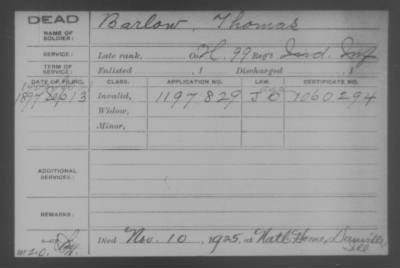 DEAD
NAME OF SOLDIER:
Barlow, Thomas
SERVICE:
Late rank, Co. H, 99 Reg't Ind. Inf
TERM OF SERVICE:
Enlisted , 1 Discharged , 1
DATE OF FILING. CLASS. APPLICATION NO. LAW. CERTIFICATE NO.
1897 Sep 13 Invalid, 1197829 1060294
Widow,
Minor,
ADDITIONAL SERVICES:
REMARKS:
Died Nov. 10, 1925, at Nat'l Home, Danville,
Ill.